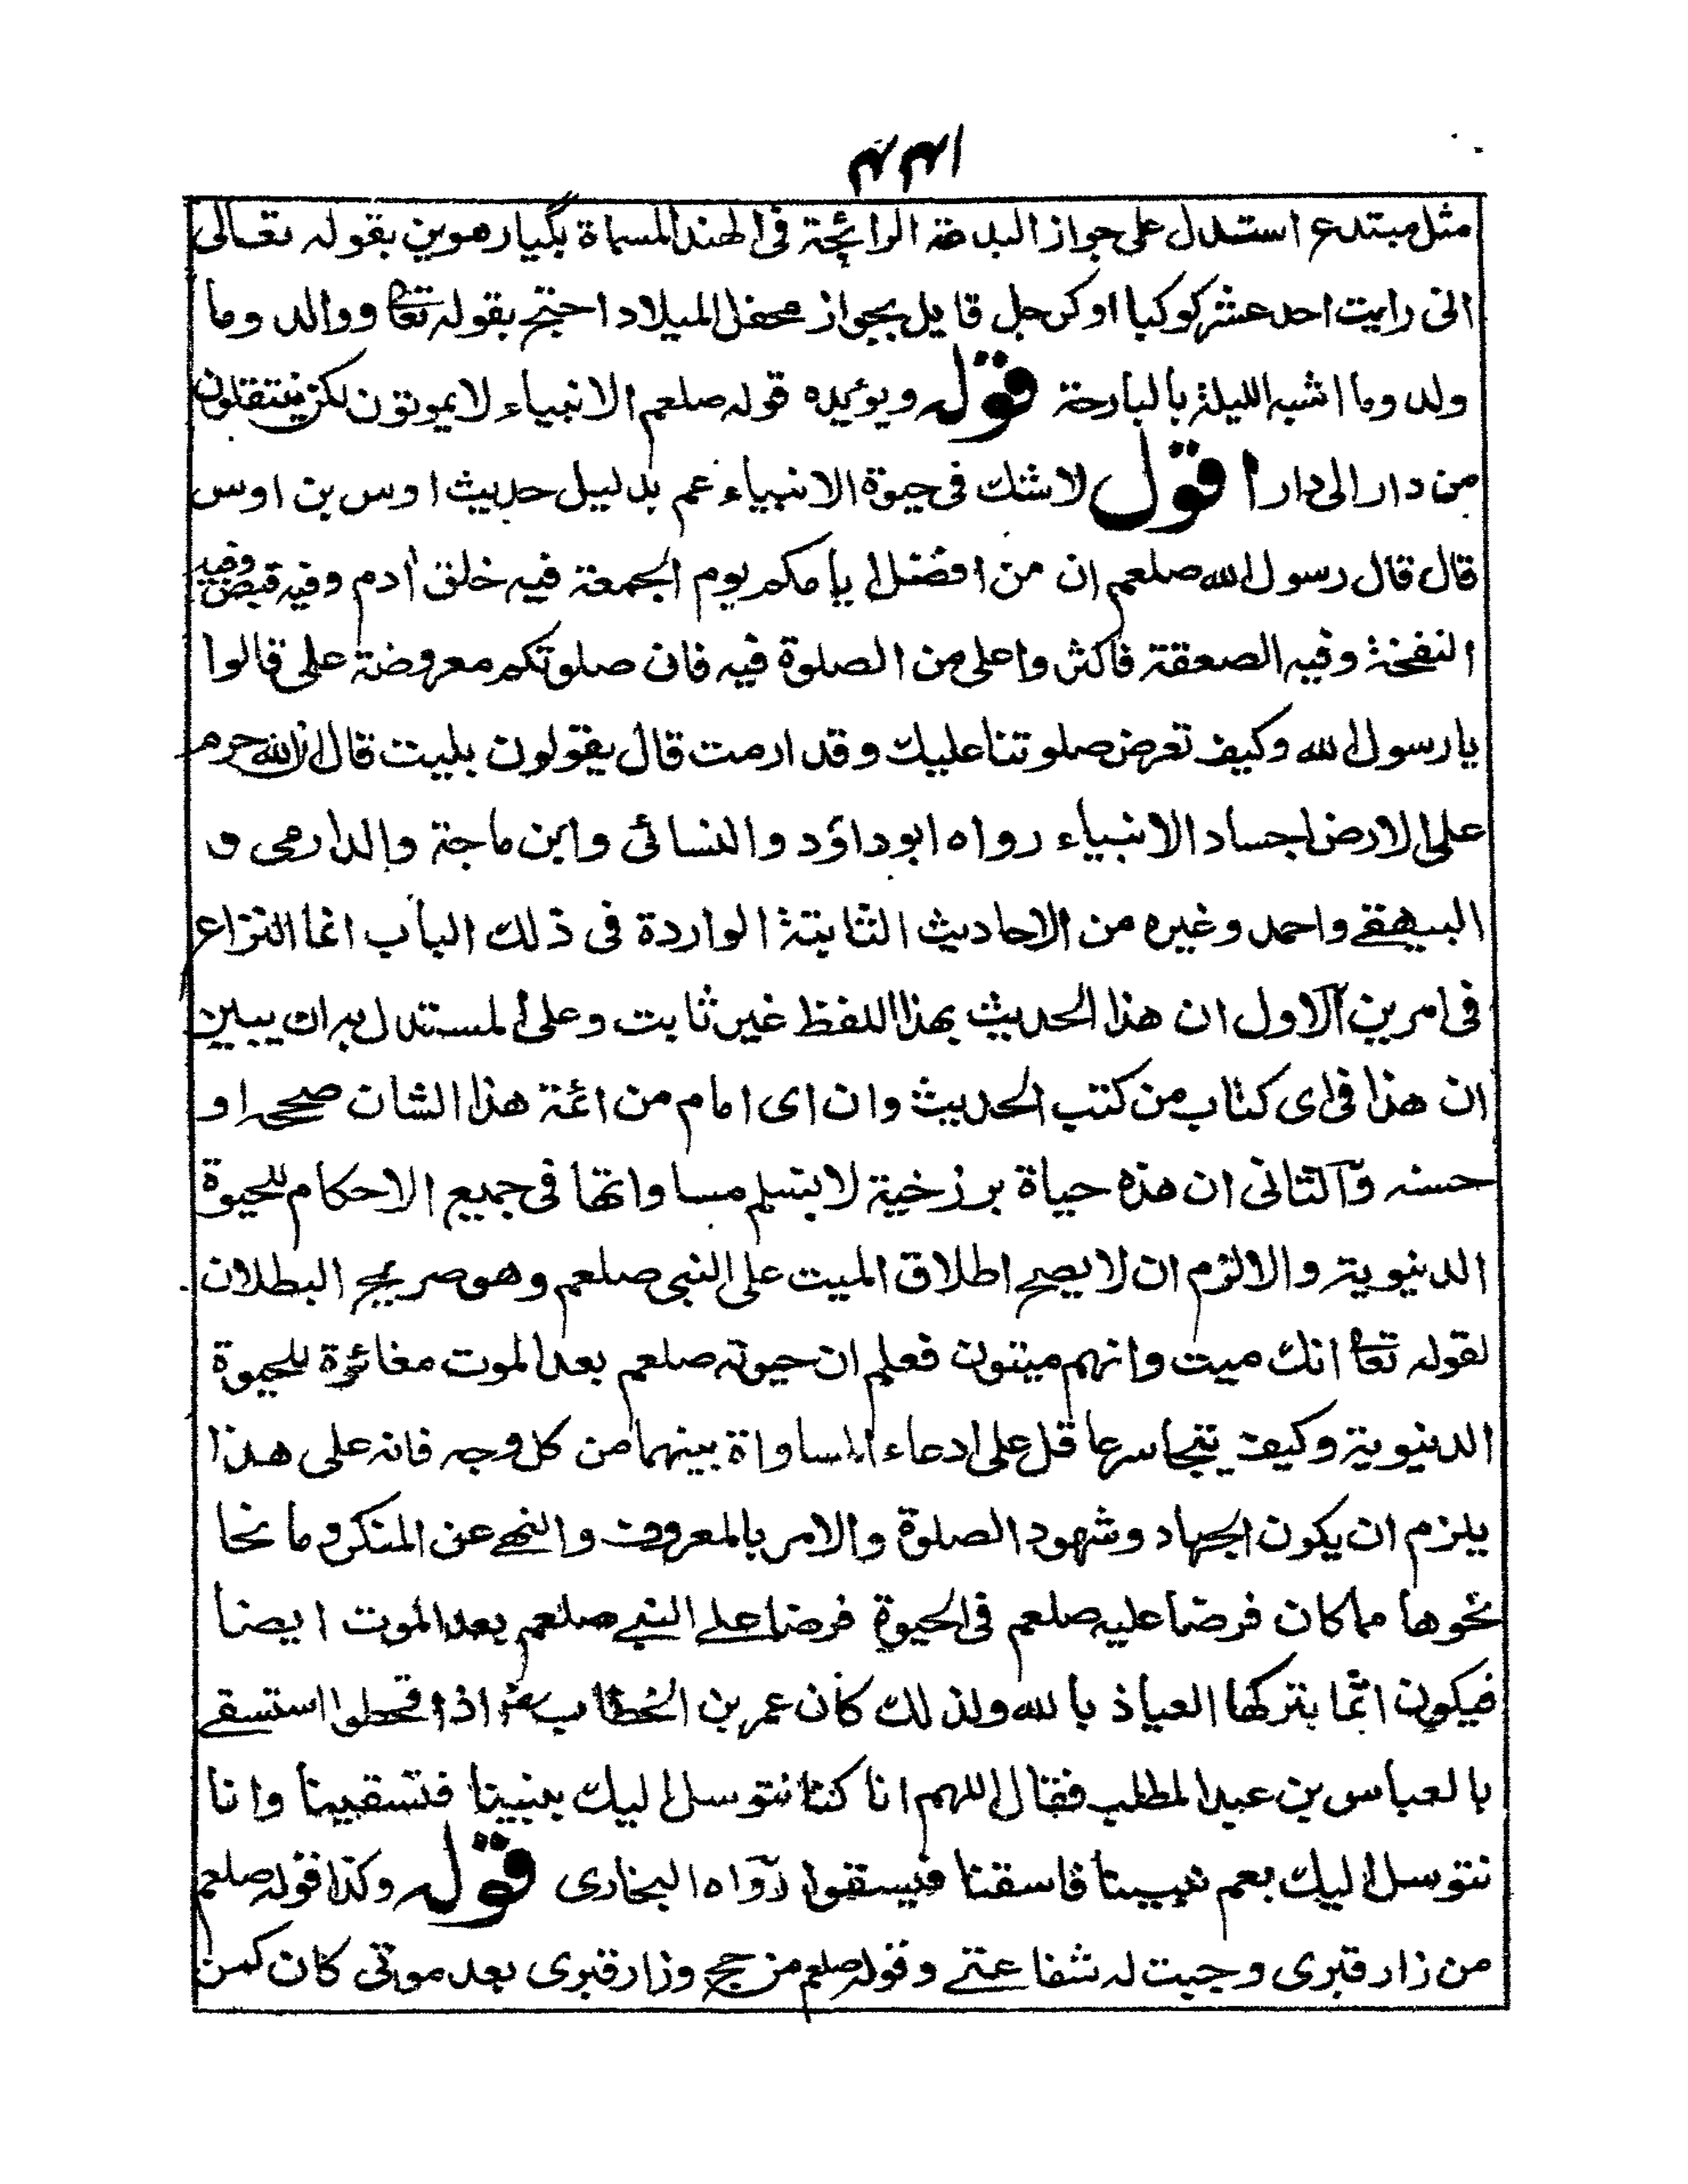 مثل مبتدع استدل على جواز البدعة الرائجة فى الهند المسماة بگيارهوين بقوله تعالى
انى رايت احد عشر كوكبا او كرجل قايل بجواز محفل الميلاد احتج بقوله تعا ووالد وما
ولد وما اشبه الليلة بالبارحة قوله ويؤيده قوله صلعم الانبياء لا يموتون لكن ينتقلون
من دار الى دار اقول لا شك فى حيوة الانبياء عم بدليل حديث اوس بن اوس
قال قال رسول الله صلعم ان من افضل ايامكم يوم الجمعة فيه خلق ادم وفيه قبض وفيه
النفخة وفيه الصعقة فاكثروا على من الصلوة فيه فان صلوتكم معروضة على قالوا
يا رسول الله وكيف تعرض صلوتنا عليك وقد ارمت قال يقولون بليت قال ان الله حرم
على الارض اجساد الانبياء رواه ابو داؤد والنسائى وابن ماجة والدارمى و
البيهقے واحمد وغيره من الاحاديث الثابتة الواردة فى ذلك الباب انما النزاع
فى امرين الاول ان هذا الحديث بهذا اللفظ غير ثابت وعلى المستدل به ان يبين
ان هذا فى اى كتاب من كتب الحديث وان اى امام من ائمة هذا الشان صححه او
حسنه والثانى ان هذه حياة برزخية لا يتسلم مساواتها فى جميع الاحكام للحيوة
الدنيوية والا لزم ان لا يصح اطلاق الميت على النبى صلعم وهو صريح البطلان
لقوله تعا انك ميت وانهم ميتون فعلم ان حيوته صلعم بعد الموت مغائرة للحيوة
الدنيوية وكيف يتجاسر عاقل على ادعاء المساواة بينهما من كل وجه فانه على هذا
يلزم ان يكون الجهاد وشهود الصلوة والامر بالمعروف والنهے عن المنكر وما نحا
نحوها مما كان فرضا عليه صلعم فى الحيوة فرضا علے النبے صلعم بعد الموت ايضا
فيكون اثما بتركها العياذ بالله ولذلك كان عمر بن الخطاب رض اذا قحطوا استسقے
بالعباس بن عبد المطلب فقال اللهم انا كنا نتوسل اليك بنبينا فتسقينا وانا
نتوسل اليك بعم نبينا فاسقنا فيسقوا رواه البخارى قوله وكذا قوله صلعم
من زار قبرى وجبت له شفاعتے وقوله صلعم من حج وزار قبرى بعد موتى كان كمن